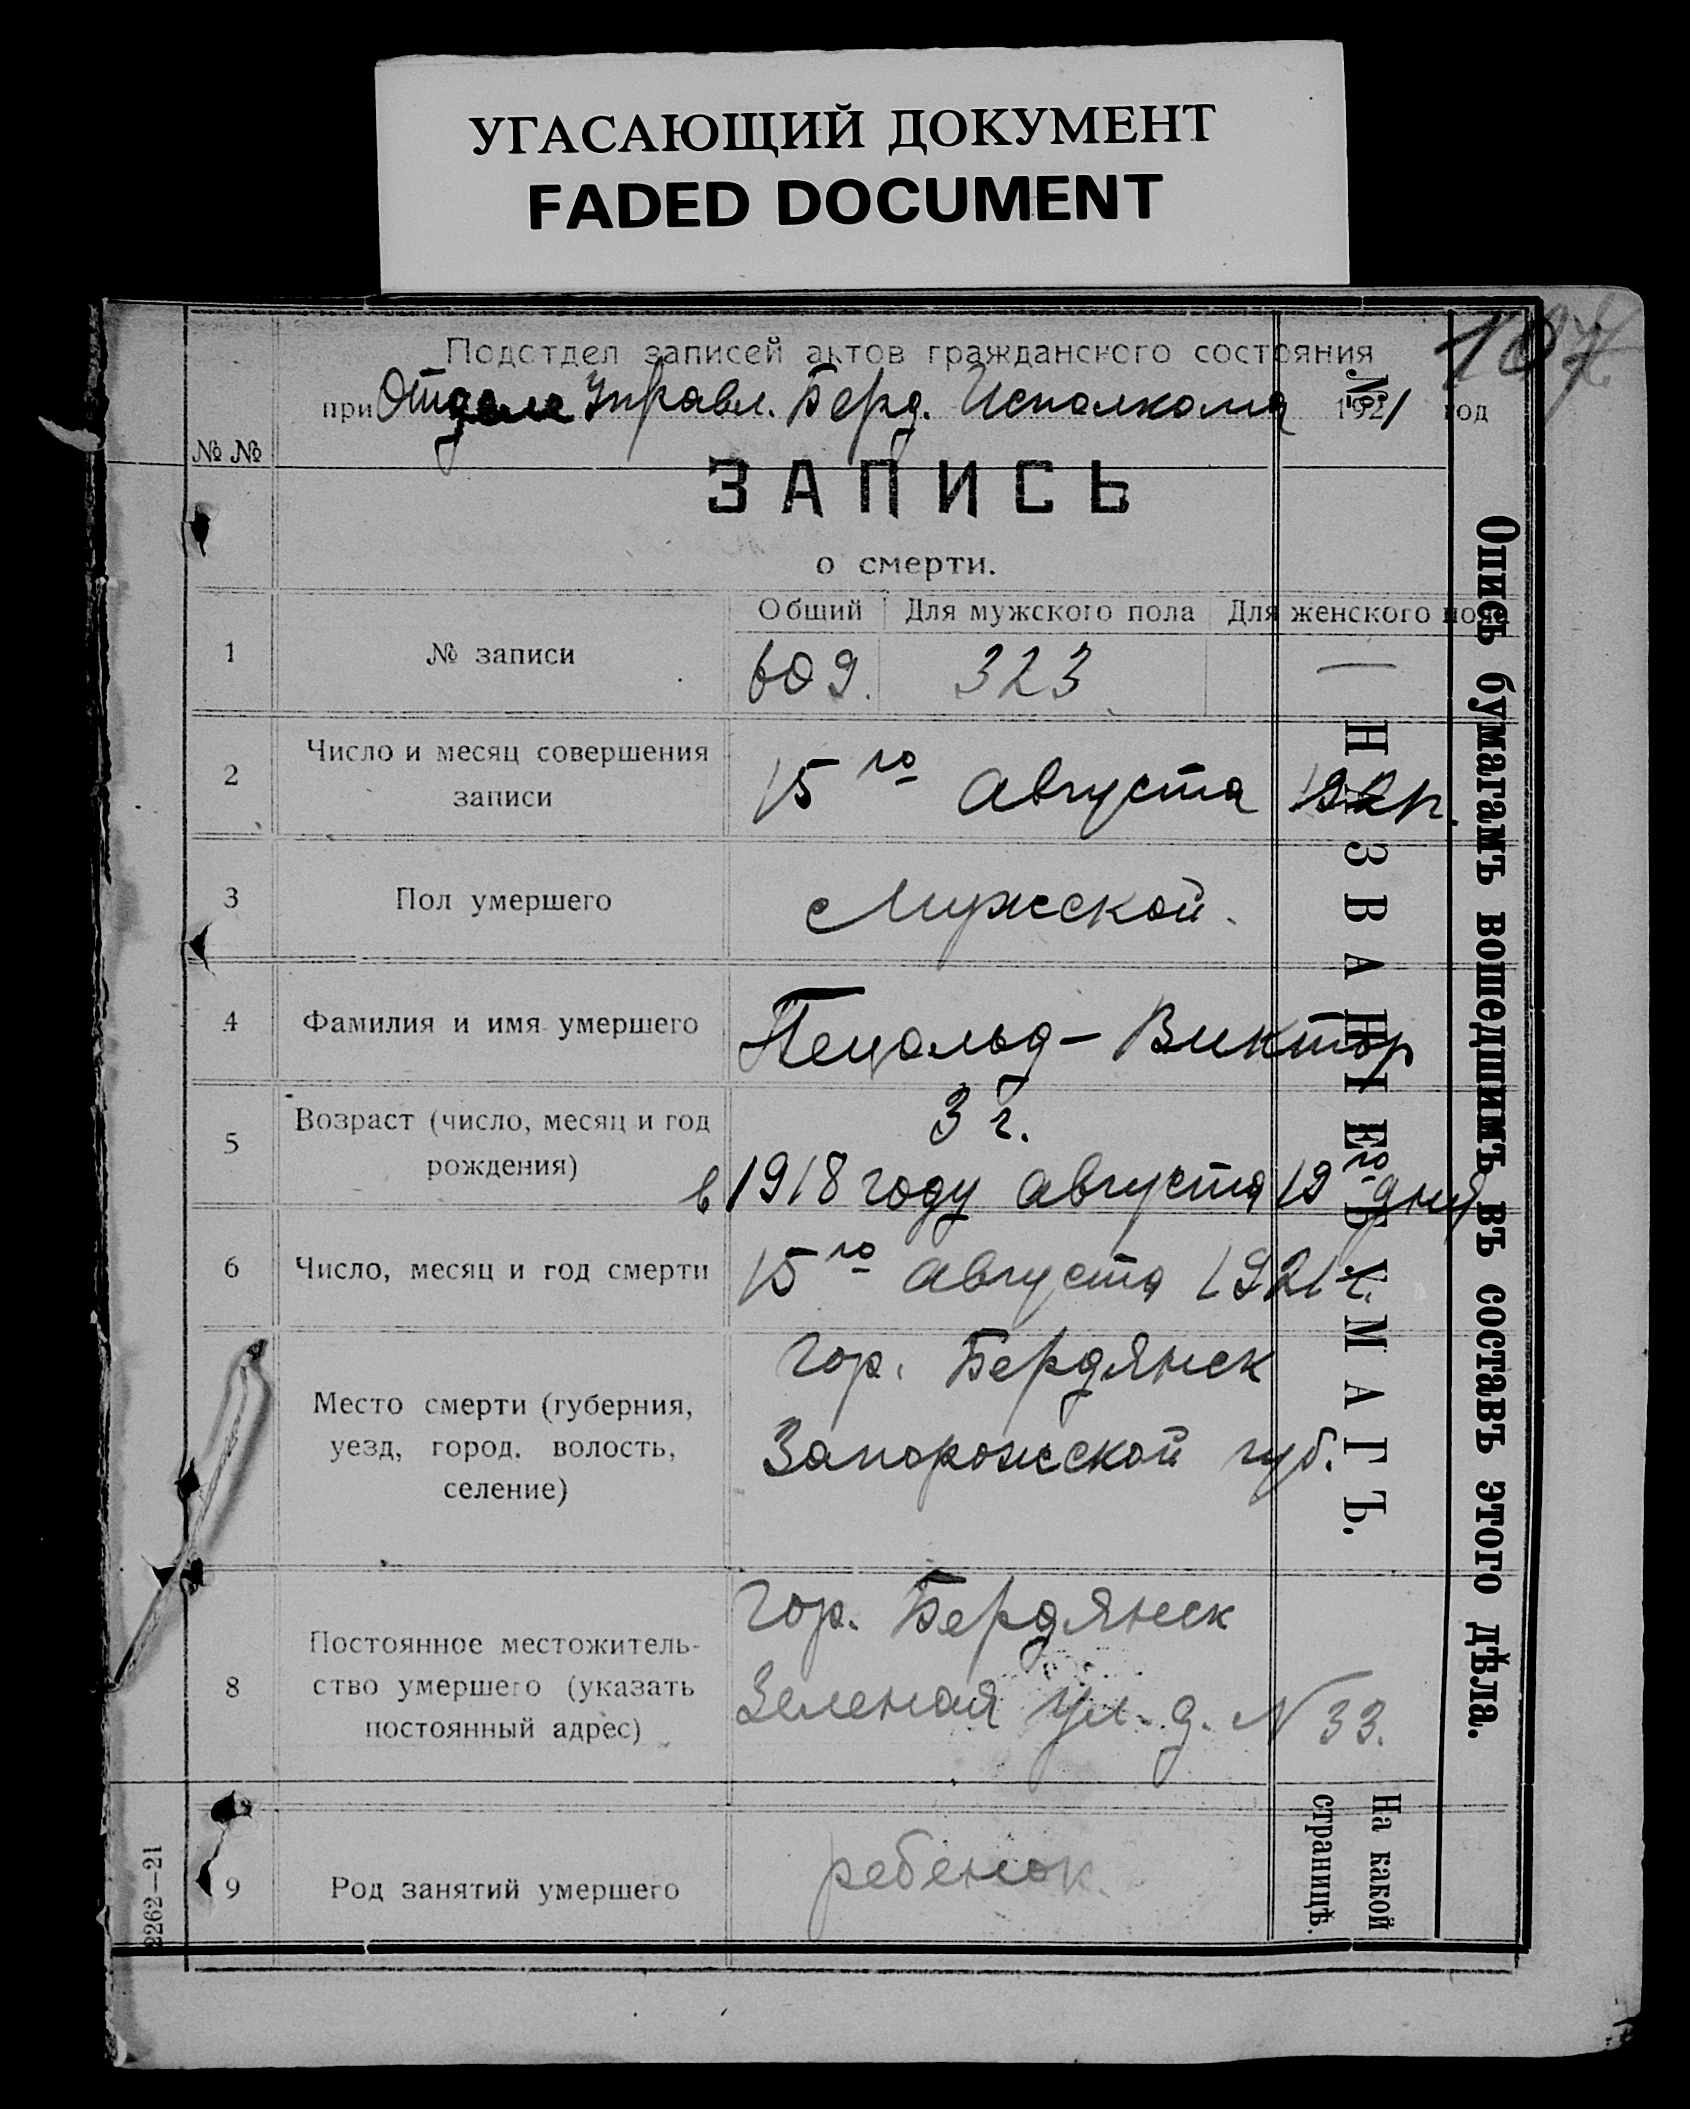 УГАСАЮЩИЙ ДОКУМЕНТ
FADED DOCUMENT
107
Подотдел записей актов гражданского состояния
при Отделе Управл. Берд. Исполкома 1921 год
№ №
ЗАПИСЬ
о смерти.
Общий Для мужского пола Для женского пола
1 № записи 609. 323 —
2 Число и месяц совершения записи 15го Августа 1921г.
3 Пол умершего Мужской.
4 Фамилия и имя умершего Пецольд - Виктор
5 Возраст (число, месяц и год рождения) 3 г.
в 1918 году августа 19го дня
6 Число, месяц и год смерти 15го Августа 1921 г.
Место смерти (губерния,
уезд, город, волость,
селение)
гор. Бердянск
Запорожской губ.
8 Постоянное местожитель-
ство умершего (указать
постоянный адрес)
Гор. Бердянск
Зеленая ул. д. N 33.
9 Род занятий умершего ребенок.
2262—21
№
НАЗВАНІЕ БУМАГЪ.
На какой
страницѣ.
Опись бумагамъ вошедшимъ въ составъ этого дѣла.